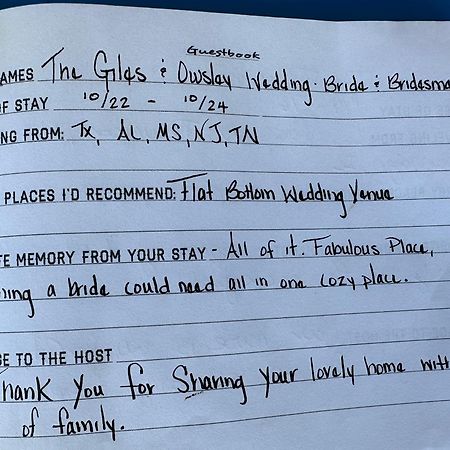 Guestbook
AMES The Giles & Owsley Wedding. Bride & Bridesma
OF STAY 10/22 - 10/24
NG FROM: TX, AL, MS, NJ, TN
PLACES I'D RECOMMEND: Flat Bottom Wedding Venue
TE MEMORY FROM YOUR STAY - All of it. Fabulous Place,
hing a bride could need all in one cozy place.
GE TO THE HOST
Thank You for Sharing your lovely home with
of family.